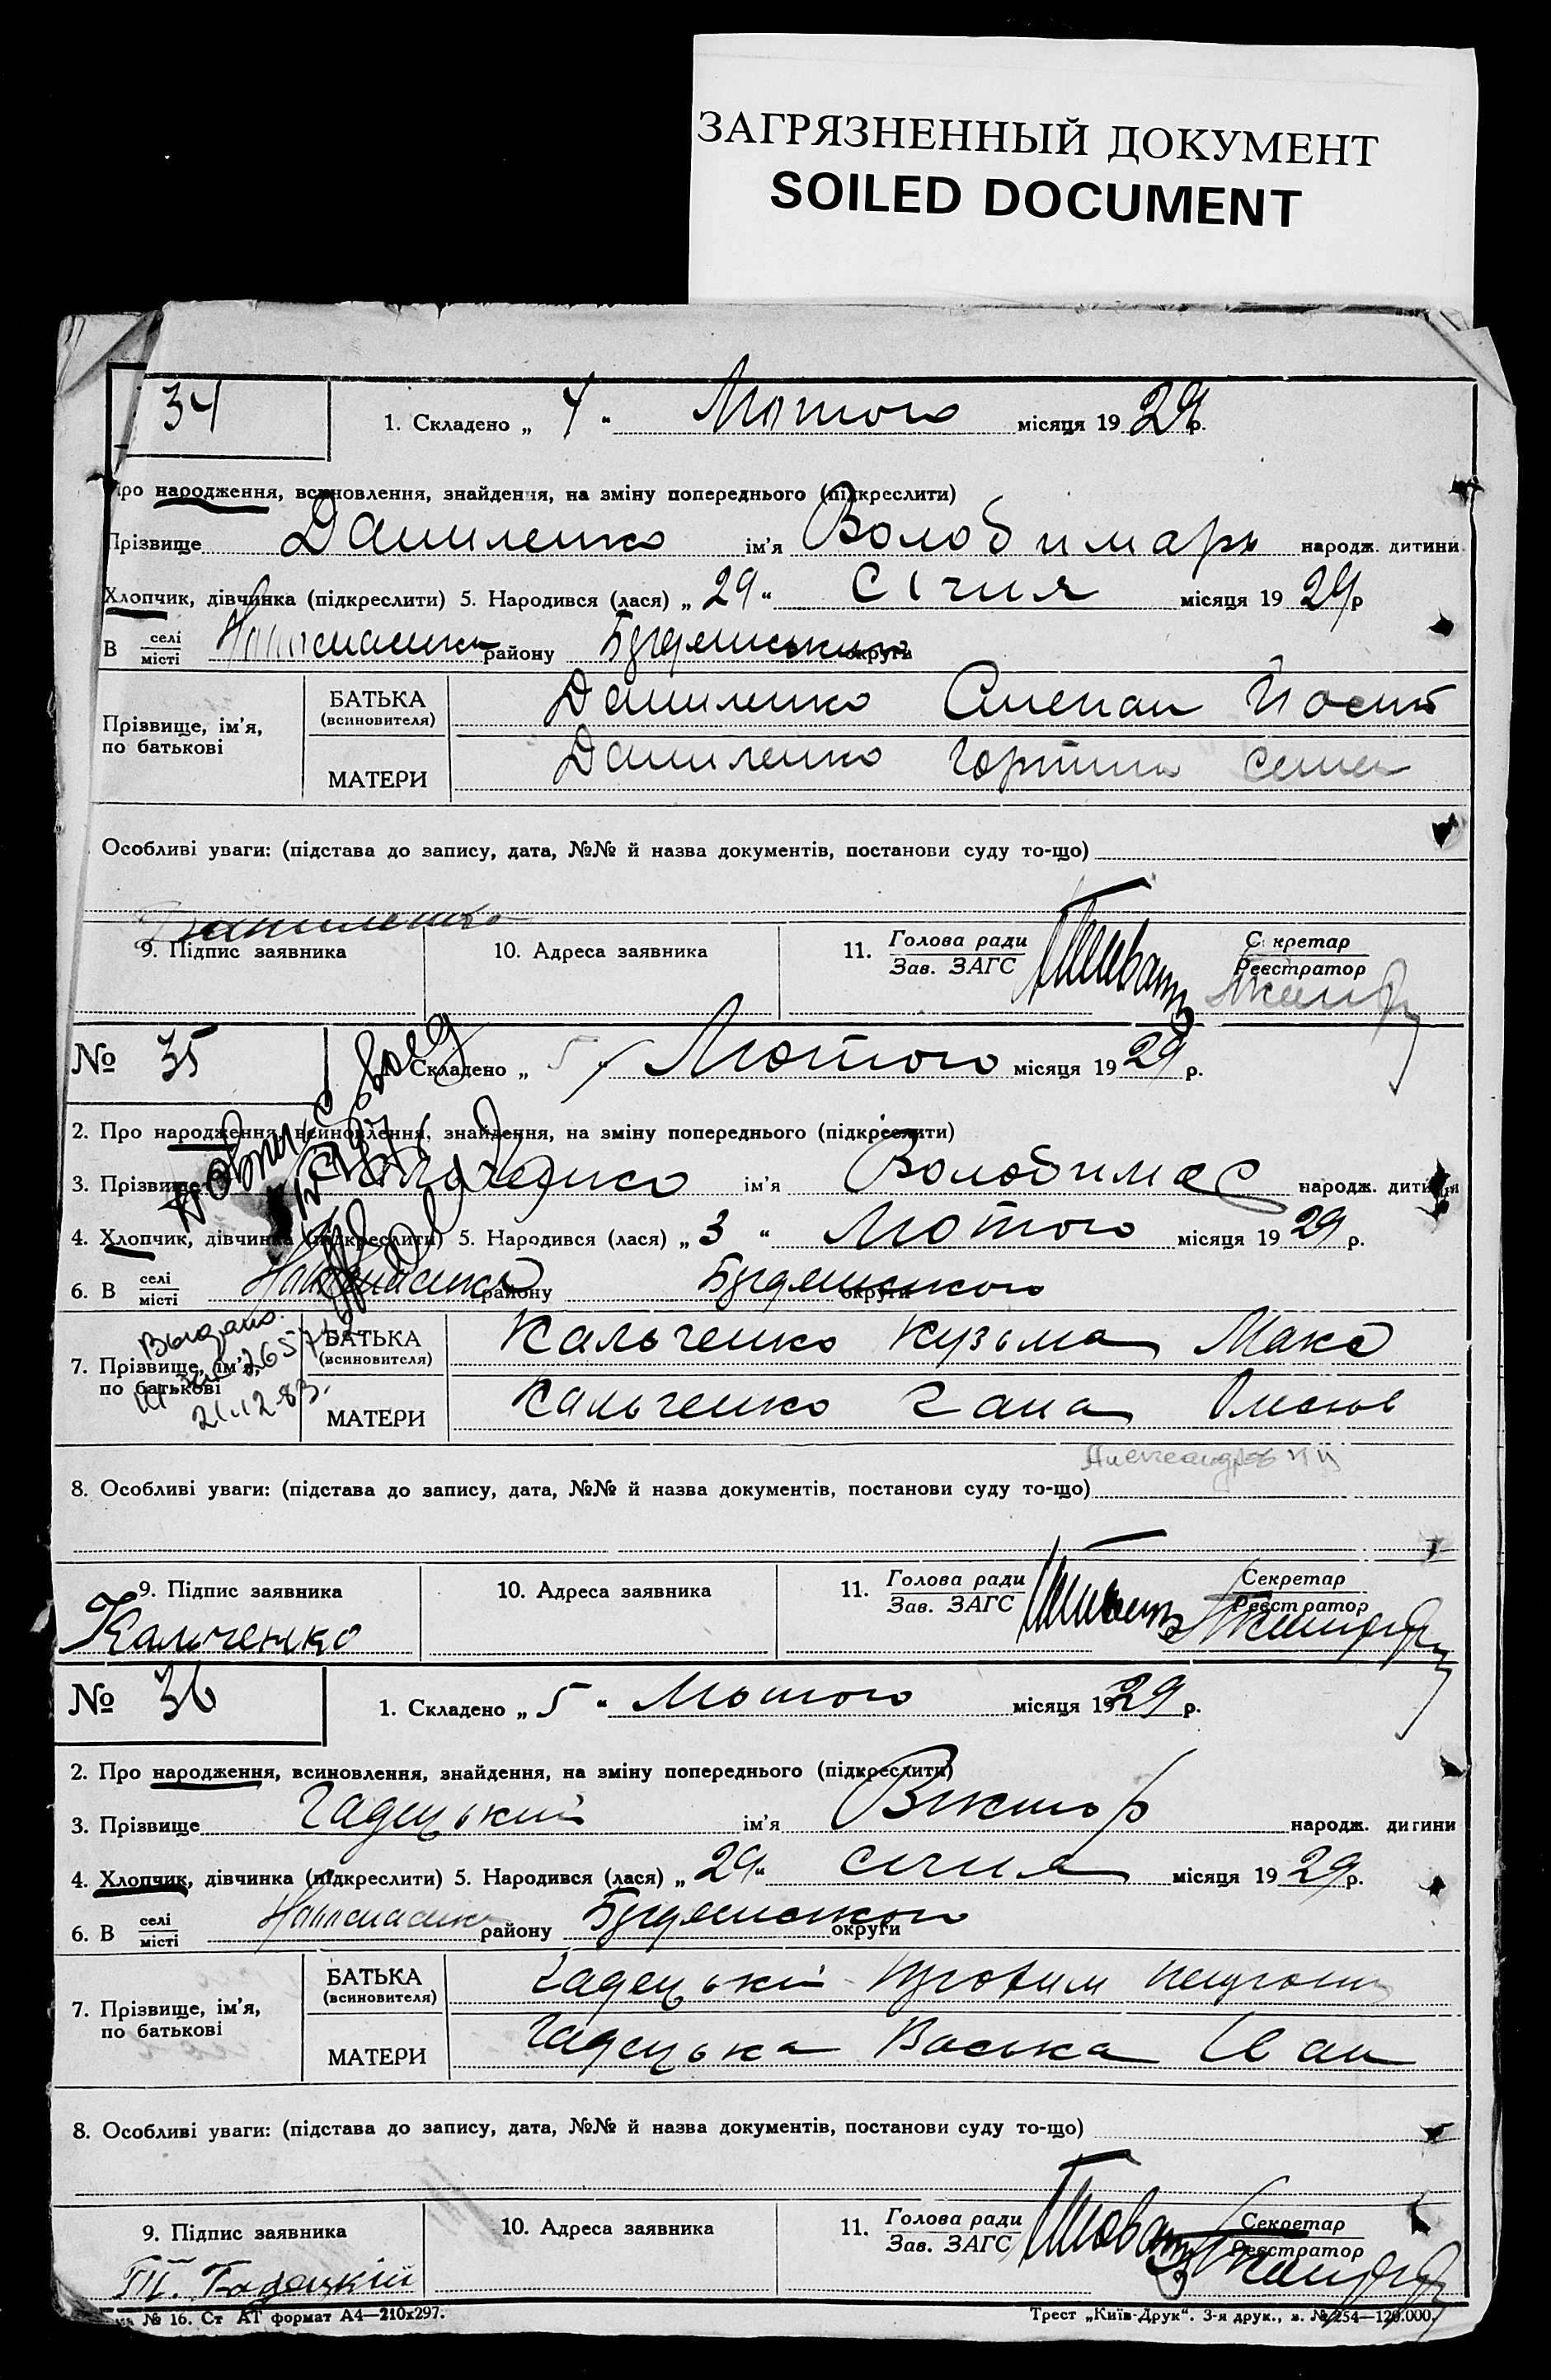 ЗАГРЯЗНЕННЫЙ ДОКУМЕНТ
SOILED DOCUMENT
34
1. Складено „ 4 “ Лютого місяця 1929 р.
про народження, всиновлення, знайдення, на зміну попереднього (підкреслити)
Прізвище Даниленко ім’я Володимарь народж. дитини
Хлопчик, дівчинка (підкреслити) 5. Народився (лася) „ 29 “ Січня місяця 1929 р
В селі місті району округи
Прізвище, ім’я, по батькові
БАТЬКА (всиновителя) Даниленко Степан Йосип
МАТЕРИ Даниленко Горпина Семен
Особливі уваги: (підстава до запису, дата, №№ й назва документів, постанови суду то-що)
Даниленко
9. Підпис заявника 10. Адреса заявника 11. Голова ради Зав. ЗАГС Секретар Реєстратор
№ 35
Складено „ 5 “ Лютого місяця 1929 р.
2. Про народження, всиновлення, знайдення, на зміну попереднього (підкреслити)
3. Прізвище Кальченко ім’я Володимер народж. дитини
4. Хлопчик, дівчинка (підкреслити) 5. Народився (лася) „ 3 “ Лютого місяця 1929 р.
6. В селі місті району округи
Выдано
21.12.83.
7. Прізвище, ім’я, по батькові
БАТЬКА (всиновителя) Кальченко Кузьма Макс
МАТЕРИ Кальченко Гана Олексов
8. Особливі уваги: (підстава до запису, дата, №№ й назва документів, постанови суду то-що)
9. Підпис заявника 10. Адреса заявника 11. Голова ради Зав. ЗАГС Секретар Реєстратор
Кальченко
№ 36
1. Складено „ 5 “ Лютого місяця 1929 р.
2. Про народження, всиновлення, знайдення, на зміну попереднього (підкреслити)
3. Прізвище Гадецький ім’я Виктор народж. дитини
4. Хлопчик, дівчинка (підкреслити) 5. Народився (лася) „ 29 “ січня місяця 1929 р.
6. В селі місті району округи
7. Прізвище, ім’я, по батькові
БАТЬКА (всиновителя) Гадецькі
МАТЕРИ Гадецька Васька Іван
8. Особливі уваги: (підстава до запису, дата, №№ й назва документів, постанови суду то-що)
9. Підпис заявника 10. Адреса заявника 11. Голова ради Зав. ЗАГС Секретар Реєстратор
Гадецкій
№ 16. Ст АТ формат А4—210х297. Трест „Київ-Друк“. 3-я друк., з. № 254—120.000.